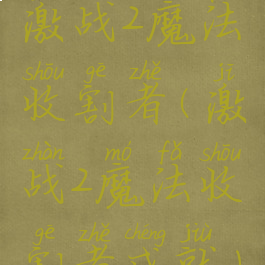 激战2魔法
shōu gē zhě jī
收割者(激
zhàn mó fǎ shōu
战2魔法收
gē zhě chéng jiù
割者成就)